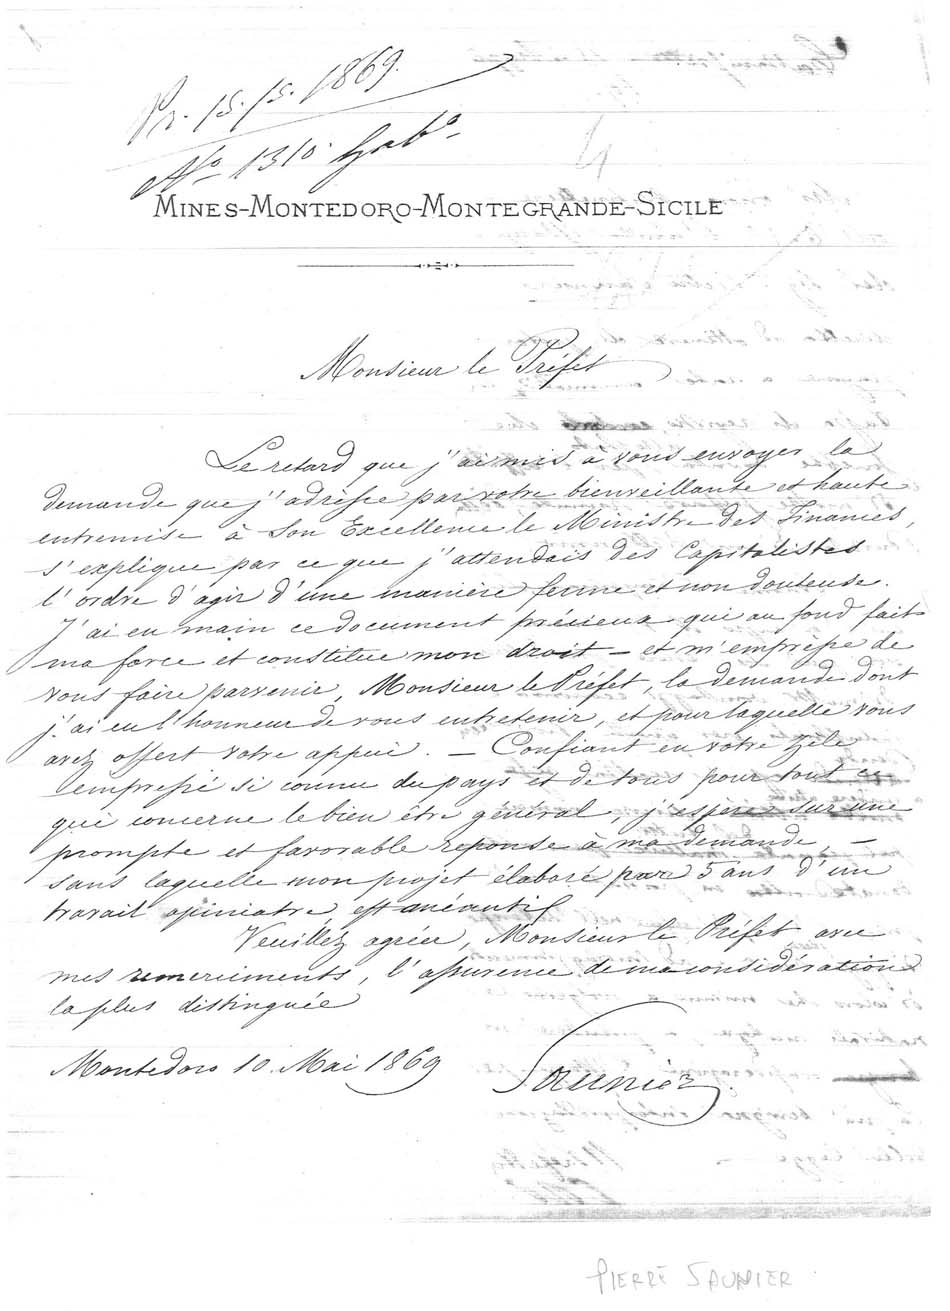 Pr. 15.5.1869.
No 1310. Gabo
MINES-MONTEDORO-MONTEGRANDE-SICILE
Monsieur le Préfet
Le retard que j'ai mis à vous envoyer la
demande que j'adresse par votre bienveillante et haute
entremise à Son Excellence le Ministre des Finances,
s'explique par ce que j'attendais des Capitalistes
l'ordre d'agir d'une manière ferme et non douteuse.
J'ai en main ce document précieux qui au fond fait
ma force et constitue mon droit – et m'empresse de
vous faire parvenir, Monsieur le Préfet, la demande dont
j'ai eu l'honneur de vous entretenir, et pour laquelle vous
avez offert votre appui. – Confiant en votre zèle
empressé si connu du pays et de tous pour tout ce
qui concerne le bien être général, j'espère sur une
prompte et favorable reponse à ma demande, –
sans laquelle mon projet élaboré par 5 ans d'un
travail opiniatre, est anéanti
Veuillez agréer, Monsieur le Préfet avec
mes remerciments, l'assurence de ma considération
la plus distinguée
Montedoro 10. Mai 1869
Saunier.
PIERRE SAUNIER